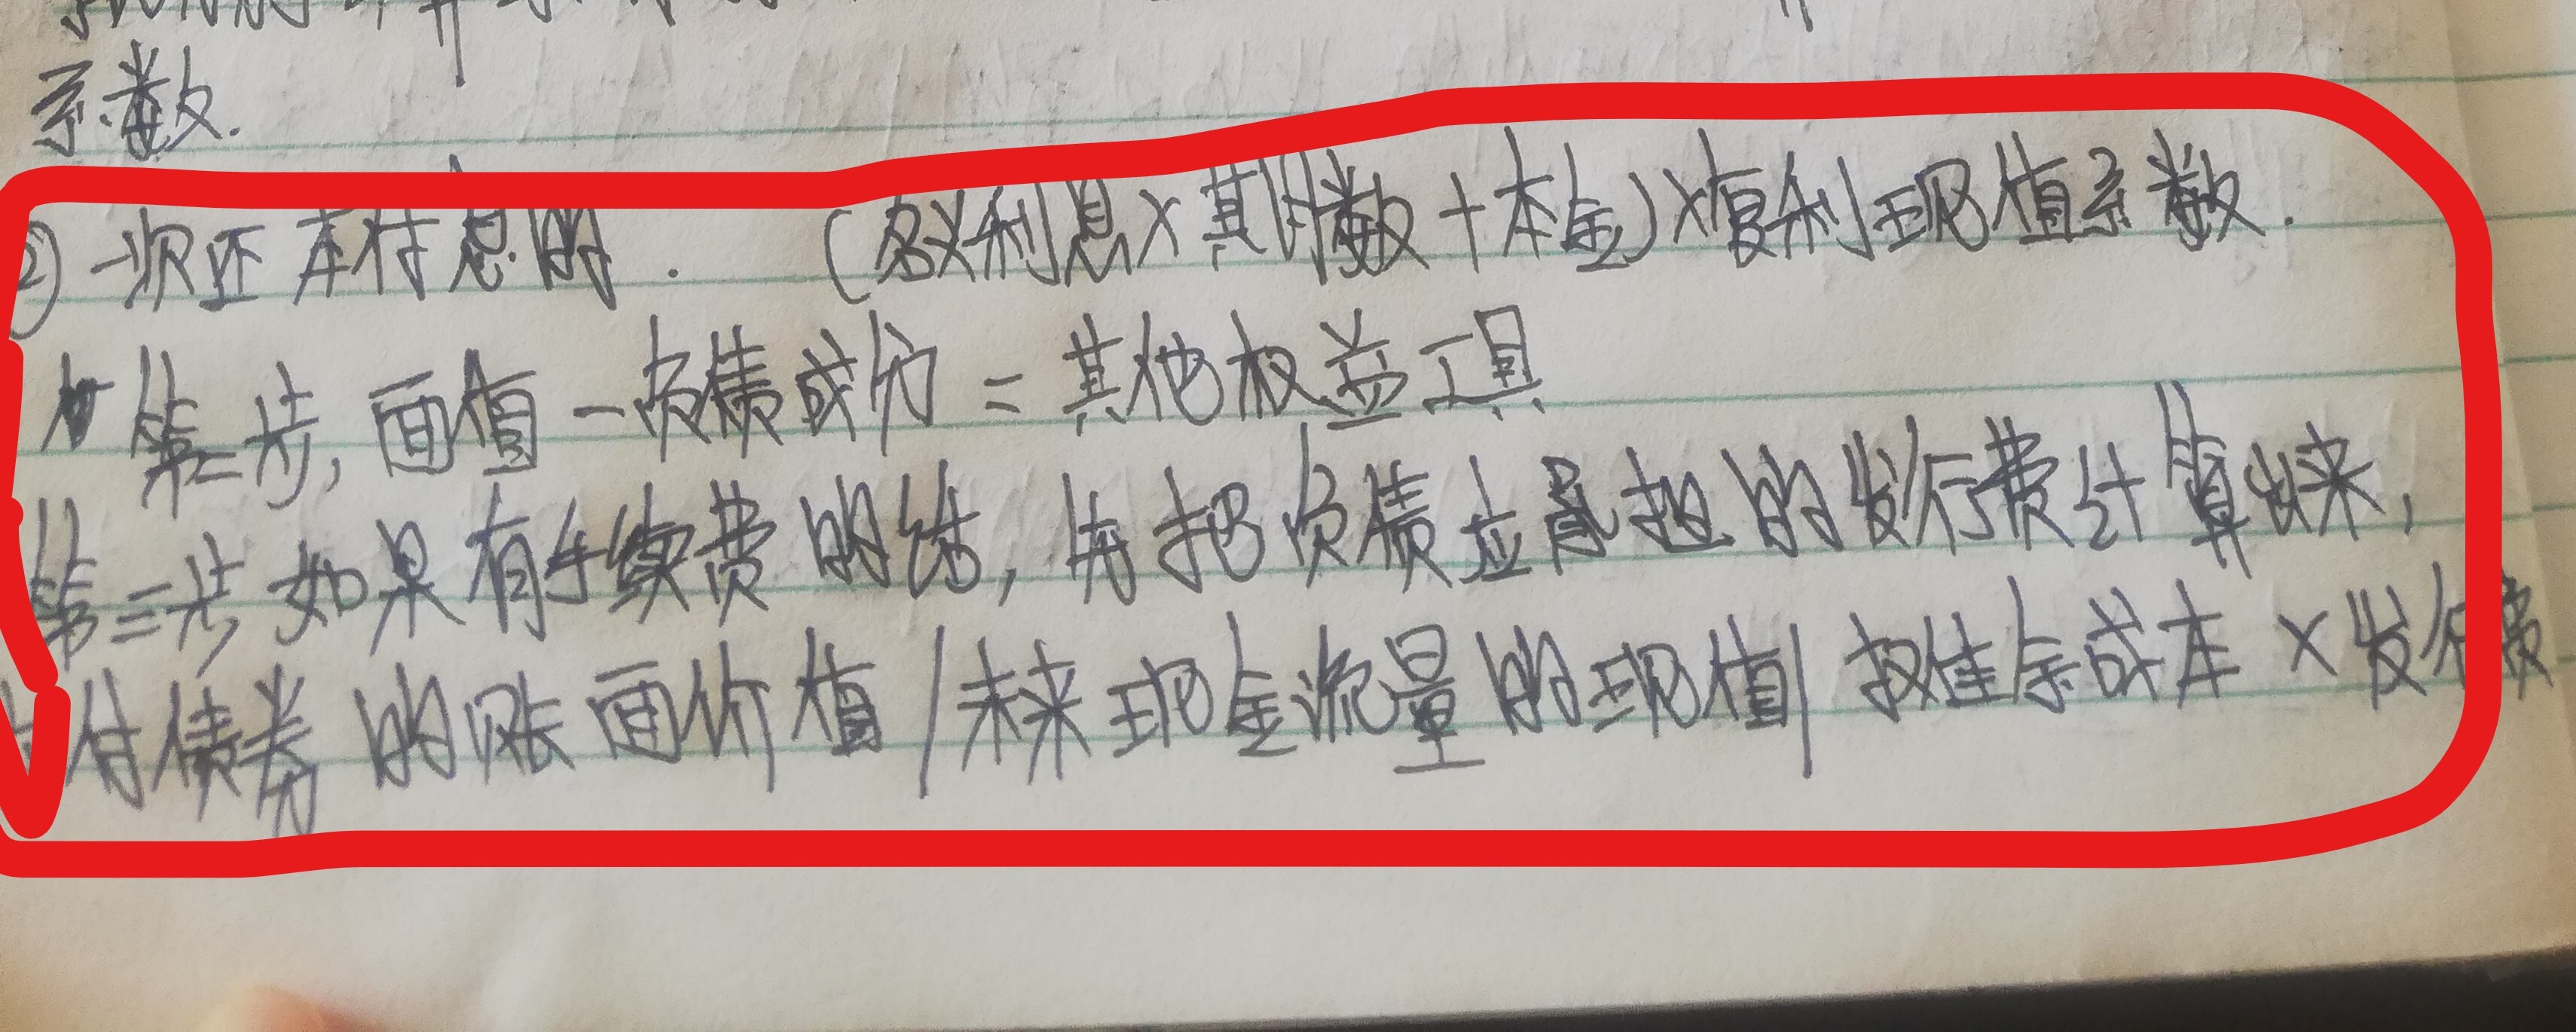 系数.
② 一次还本付息的. (名义利息×其期数+本金)×复利现值系数.
第二步,面值-负债成份=其他权益工具
第三步如果有手续费的话,先把负债应负担的发行费计算出来,
付债券的账面价值/未来现金流量的现值/摊余成本×发行费